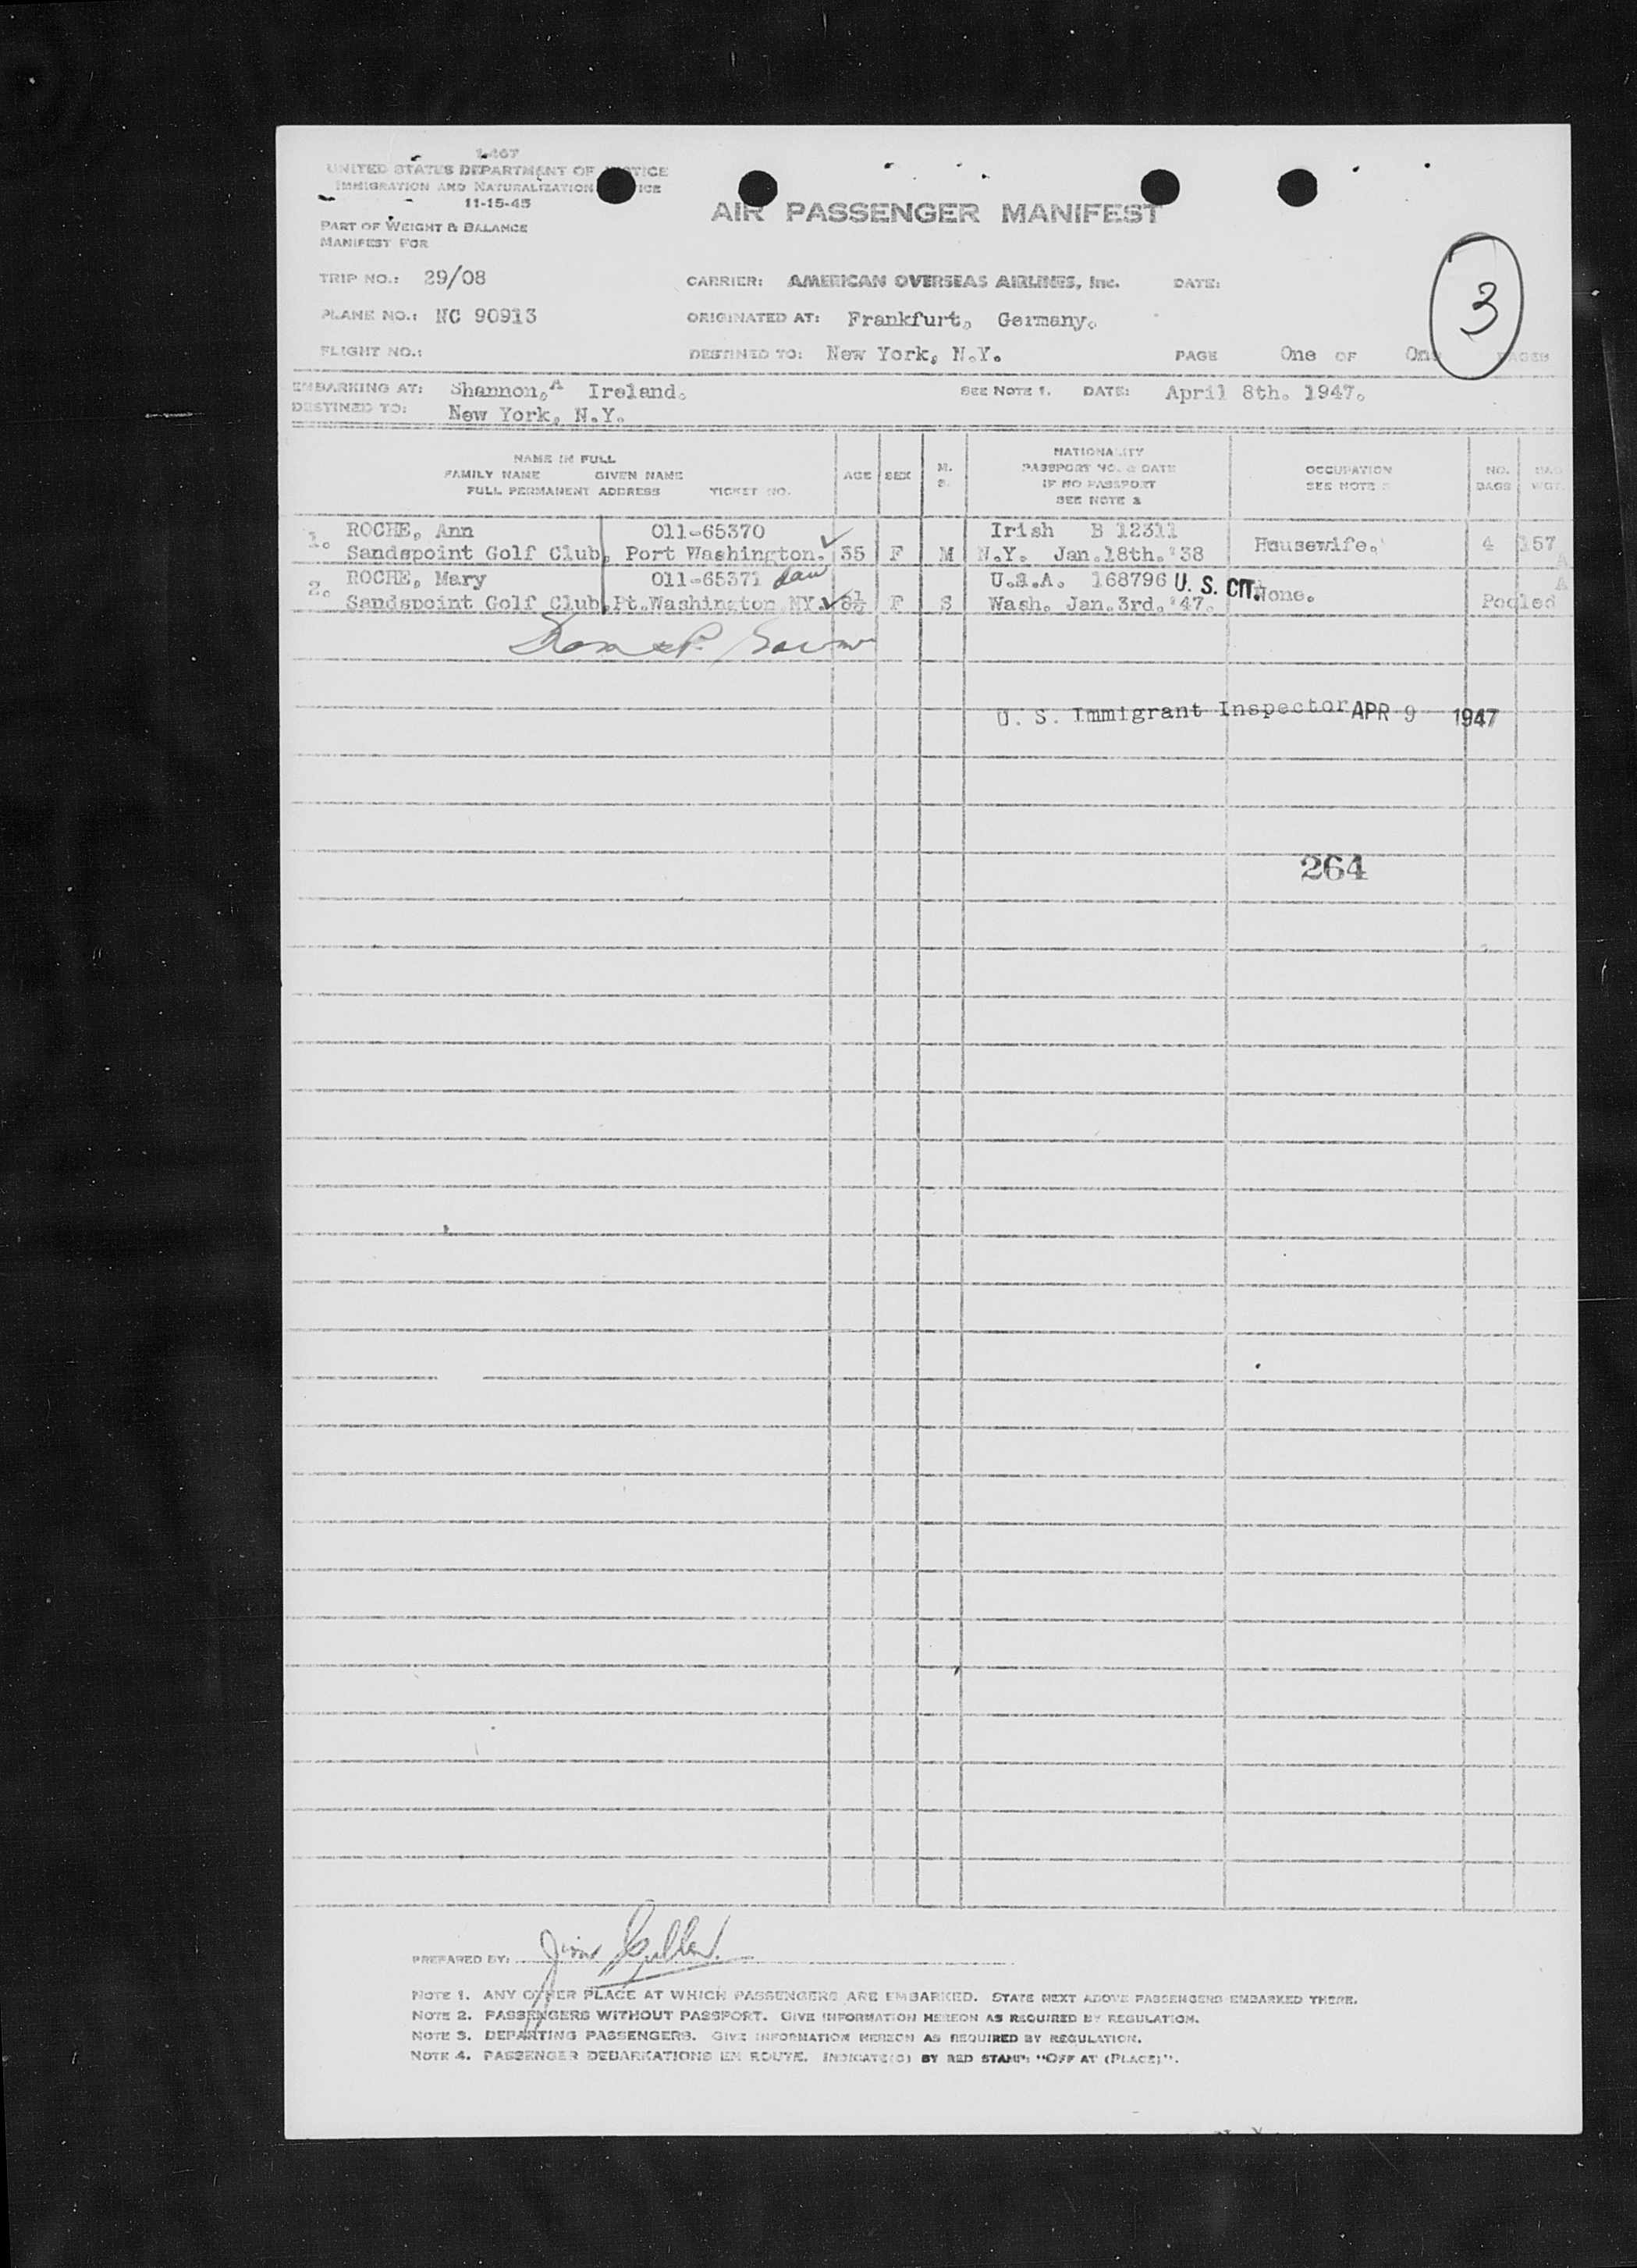 I-467
UNITED STATES DEPARTMENT OF JUSTICE
IMMIGRATION AND NATURALIZATION SERVICE
11-15-45
AIR PASSENGER MANIFEST
PART OF WEIGHT & BALANCE
MANIFEST FOR
3
TRIP NO.: 29/08 CARRIER: AMERICAN OVERSEAS AIRLINES, Inc. DATE:
PLANE NO.: NC 90913 ORIGINATED AT: Frankfurt, Germany.
FLIGHT NO.: DESTINED TO: New York, N.Y. PAGE One OF One PAGES
EMBARKING AT: Shannon, A Ireland. SEE NOTE 1. DATE: April 8th. 1947.
DESTINED TO: New York, N.Y.
NAME IN FULL
FAMILY NAME GIVEN NAME
FULL PERMANENT ADDRESS TICKET NO.
AGE
SEX
M.
S.
NATIONALITY
PASSPORT NO. & DATE
IF NO PASSPORT
SEE NOTE 2
OCCUPATION
SEE NOTE 3
NO.
BAGS
BAG
WGT.
1. ROCHE, Ann 011-65370 Irish B 12311
Sandspoint Golf Club, Port Washington. 35 F M N.Y. Jan.18th.'38 Housewife. 4 157
2. ROCHE, Mary 011-65371 U.S.A. 168796 U. S. CIT.
Sandspoint Golf Club, Pt.Washington NY. 8½ F S Wash. Jan.3rd.'47. None. Pooled
U. S. Immigrant Inspector APR 9 1947
264
PREPARED BY: Jim Cullen
NOTE 1. ANY OTHER PLACE AT WHICH PASSENGERS ARE EMBARKED. STATE NEXT ABOVE PASSENGERS EMBARKED THERE.
NOTE 2. PASSENGERS WITHOUT PASSPORT. GIVE INFORMATION HEREON AS REQUIRED BY REGULATION.
NOTE 3. DEPARTING PASSENGERS. GIVE INFORMATION HEREON AS REQUIRED BY REGULATION.
NOTE 4. PASSENGER DEBARKATIONS EN ROUTE. INDICATE(D) BY RED STAMP: "OFF AT (PLACE)".